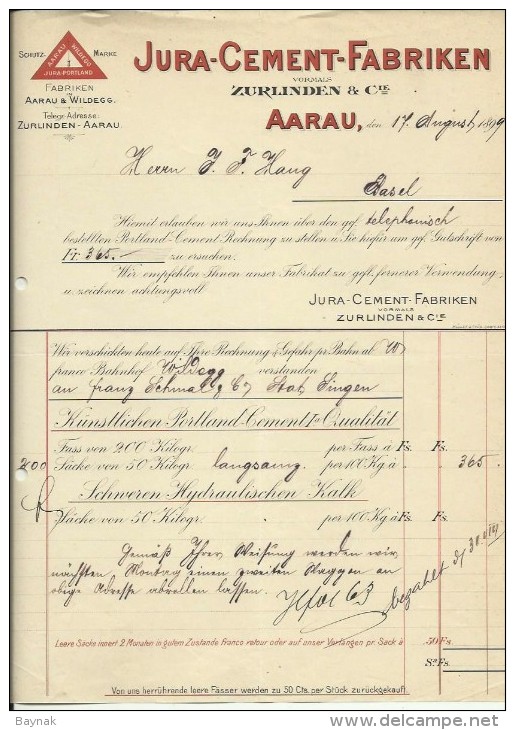 SCHUTZ- MARKE
AARAU WILDEGG
JURA-PORTLAND
FABRIKEN
IN
AARAU & WILDEGG.
Telegr.-Adresse:
ZURLINDEN-AARAU.
JURA-CEMENT-FABRIKEN
VORMALS
ZURLINDEN & CIE
AARAU, den 17. August 1899
Herrn J. F. Haug
Basel
Hiemit erlauben wir uns Ihnen über den ggf. telephonisch
bestellten Portland-Cement Rechnung zu stellen u. Sie hiefür um ggf. Gutschrift von
Fr. 365.— zu ersuchen.
Wir empfehlen Ihnen unser Fabrikat zu gefl. fernerer Verwendung
u. zeichnen achtungsvoll
JURA-CEMENT-FABRIKEN
VORMALS
ZURLINDEN & CIE
Wir verschickten heute auf Ihre Rechnung & Gefahr pr. Bahn ab W
franco Bahnhof Wildegg verstanden
an Franz Schmal Stat. Singen
Künstlichen Portland-Cement Ia Qualität
Fass von 200 Kilogr. per Fass à Fs.
200 Säcke von 50 Kilogr. langsamg. per 100 Kg à Fs. 365.
Schweren Hydraulischen Kalk
Säcke von 50 Kilogr. per 100 Kg à Fs. Fs.
Gemäß Ihrer Weisung werden wir
nächsten Montag einen zweiten Waggon an
obige Adresse abrollen lassen.
bezahlt
Leere Säcke innert 2 Monaten in gutem Zustande Franco retour oder auf unser Verlangen pr. Sack à 50 Fs.
Sa Fs.
Von uns herrührende leere Fässer werden zu 30 Cts. per Stück zurückgekauft.
Baynak
www.delcampe.net